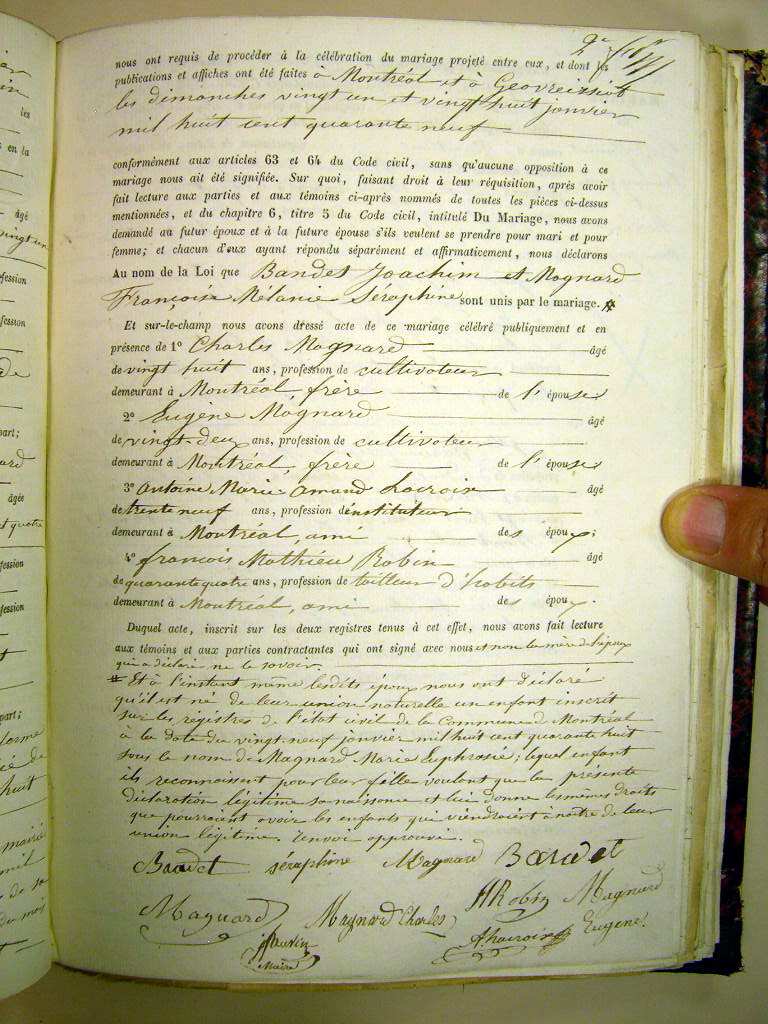 2e
nous ont requis de procéder à la célébration du mariage projeté entre eux, et dont les
publications et affiches ont été faites à Montréal et à Geovreissiat
les dimanches vingt un et vingt huit janvier
mil huit cent quarante neuf
conformément aux articles 63 et 64 du Code civil, sans qu'aucune opposition à ce
mariage nous ait été signifiée. Sur quoi, faisant droit à leur réquisition, après avoir
fait lecture aux parties et aux témoins ci-après nommés de toutes les pièces ci-dessus
mentionnées, et du chapitre 6, titre 5 du Code civil, intitulé Du Mariage, nous avons
demandé au futur époux et à la future épouse s'ils veulent se prendre pour mari et pour
femme; et chacun d'eux ayant répondu séparément et affirmativement, nous déclarons
Au nom de la Loi que Baudet Joachim et Magnard
Françoise Mélanie Séraphine sont unis par le mariage. #
Et sur-le-champ nous avons dressé acte de ce mariage célébré publiquement et en
présence de 1º Charles Magnard âgé
de vingt huit ans, profession de cultivateur
demeurant à Montréal frère de l'épouse
2º Eugène Magnard âgé
de vingt-deux ans, profession de cultivateur
demeurant à Montréal, frère de l'épouse
3º Antoine Marie Amand Lacroix âgé
de trente neuf ans, profession d'instituteur
demeurant à Montréal, ami des époux;
4º françois Mathieu Robin âgé
de quarante quatre ans, profession de tailleur d'habits
demeurant à Montréal, ami des époux.
Duquel acte, inscrit sur les deux registres tenus à cet effet, nous avons fait lecture
aux témoins et aux parties contractantes qui ont signé avec nous et non la mère de l'époux
qui a déclaré ne le savoir.
# Et à l'instant même lesdits époux nous ont déclaré
qu'il est né de leur union naturelle un enfant inscrit
sur les régistres de l'état civil de la Commune de Montréal
à la date du vingt neuf janvier mil huit cent quarante huit
sous le nom de Magnard Marie Euphrosie; lequel enfant
ils reconnaissent pour leur fille voulant que la présente
déclaration légitime sa naissance et lui donne les mêmes droits
que pourraient avoir les enfants qui viendraient à naître de leur
union légitime. Renvoi approuvé.
Baudet séraphine Magnard Baudet
Magnard Magnard Charles HRobin Magnard
Maire A. Lacroix Eugène